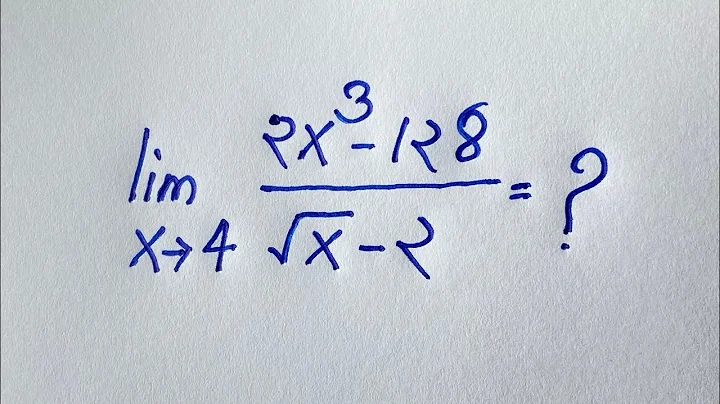 lim x→4 (2x³-128)/(√x-2) = ?